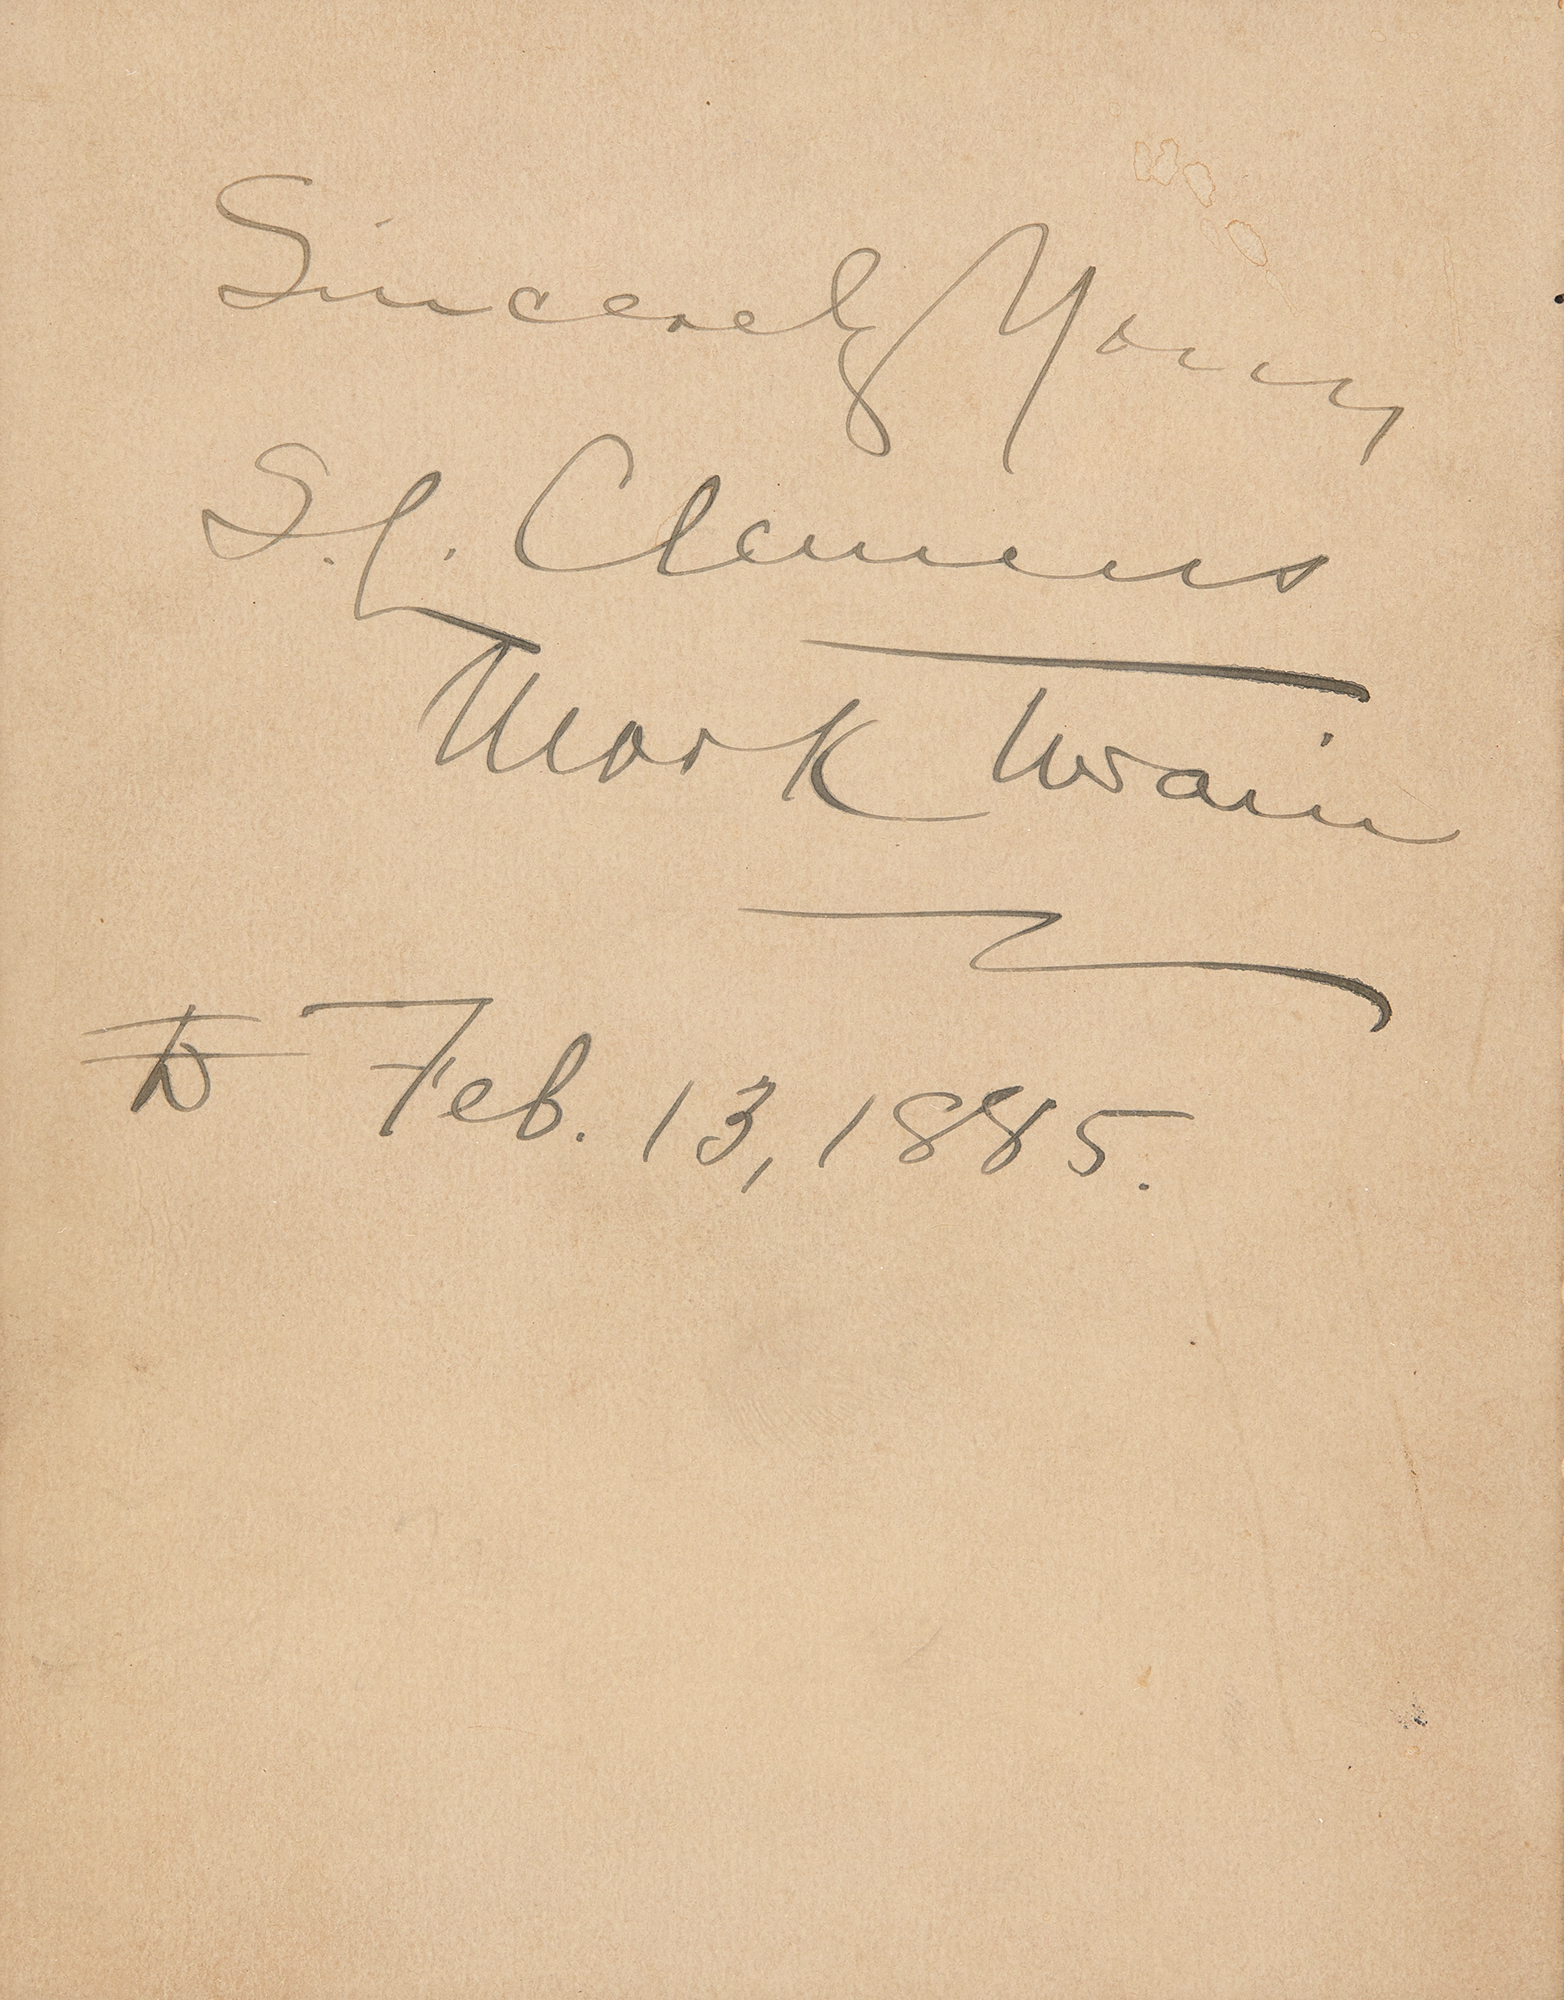 Sincerely Yours
S. L. Clemens
Mark Twain
Feb. 13, 1885.